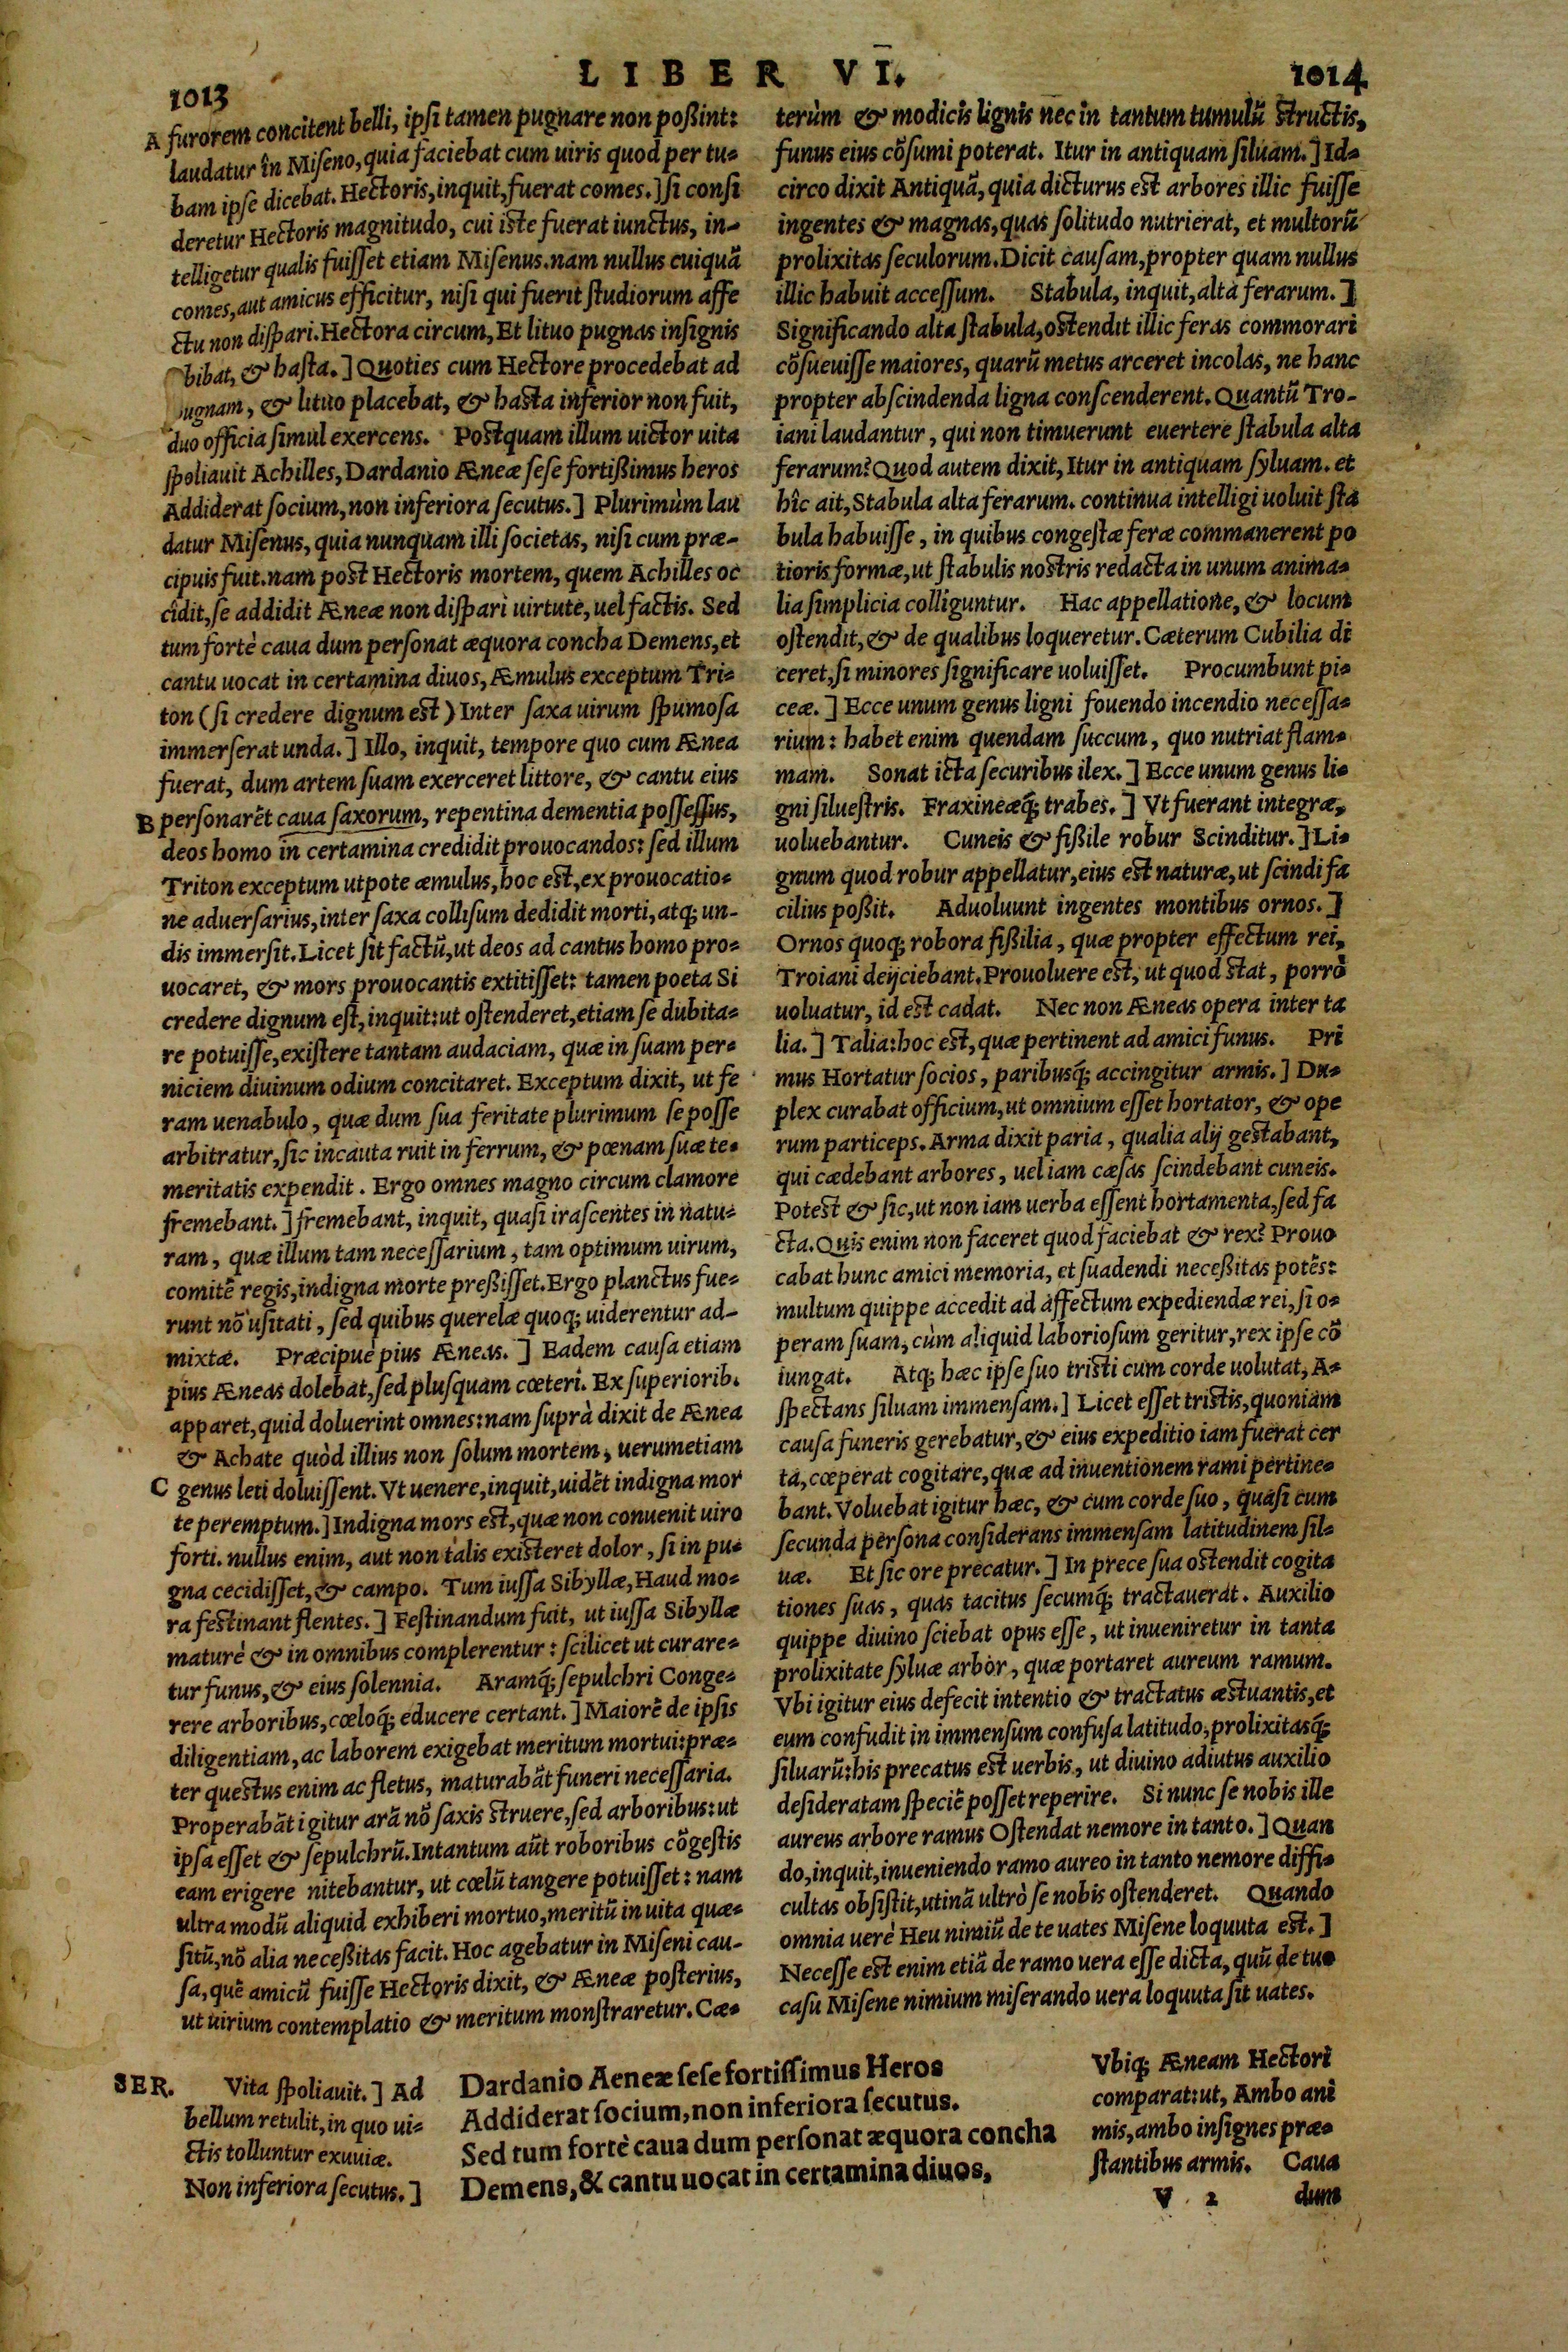 LIBER VI.
1013
1014
A furorem concitent belli, ipſi tamen pugnare non poßint:
laudatur in Miſeno, quia faciebat cum uiris quod per tu⸗
bam ipſe dicebat. Hectoris, inquit, fuerat comes.] ſi conſi
deretur Hectoris magnitudo, cui iſte fuerat iunctus, in-
telligetur qualis fuiſſet etiam Miſenus. nam nullus cuiquã
comes, aut amicus efficitur, niſi qui fuerit ſtudiorum affe
ctu non diſpari. Hectora circum, Et lituo pugnas inſignis
bibat, & haſta.] Quoties cum Hectore procedebat ad
ugnam, & lituo placebat, & haſta inferior non fuit,
duo officia ſimul exercens. Poſtquam illum uictor uita
ſpoliauit Achilles, Dardanio Æneæ ſeſe fortißimus heros
Addiderat ſocium, non inferiora ſecutus.] Plurimùm lau
datur Miſenus, quia nunquam illi ſocietas, niſi cum præ-
cipuis fuit. nam poſt Hectoris mortem, quem Achilles oc
cîdit, ſe addidit Æneæ non diſpari uirtute, uel factis. Sed
tum fortè caua dum perſonat æquora concha Demens, et
cantu uocat in certamina diuos, Æmulus exceptum Tri⸗
ton (ſi credere dignum eſt) Inter ſaxa uirum ſpumoſa
immerſerat unda.] Illo, inquit, tempore quo cum Ænea
fuerat, dum artem ſuam exerceret littore, & cantu eius
B perſonarẽt caua ſaxorum, repentina dementia poſſeſſus,
deos homo in certamina credidit prouocandos: ſed illum
Triton exceptum utpote æmulus, hoc eſt, ex prouocatio⸗
ne aduerſarius, inter ſaxa colliſum dedidit morti, atq; un-
dis immerſit. Licet ſit factũ, ut deos ad cantus homo pro⸗
uocaret, & mors prouocantis extitiſſet: tamen poeta Si
credere dignum eſt, inquit: ut oſtenderet, etiam ſe dubita⸗
re potuiſſe, exiſtere tantam audaciam, quæ in ſuam per⸗
niciem diuinum odium concitaret. Exceptum dixit, ut fe
ram uenabulo, quæ dum ſua feritate plurimum ſe poſſe
arbitratur, ſic incauta ruit in ferrum, & pœnam ſuæ te⸗
meritatis expendit. Ergo omnes magno circum clamore
fremebant.] fremebant, inquit, quaſi iraſcentes in natu⸗
ram, quæ illum tam neceſſarium, tam optimum uirum,
comitẽ regis, indigna morte preßiſſet. Ergo planctus fue⸗
runt nõ uſitati, ſed quibus querelæ quoq; uiderentur ad-
mixtæ. Præcipuè pius Æneas.] Eadem cauſa etiam
pius Æneas dolebat, ſed pluſquam cœteri. Ex ſuperiorib.
apparet, quid doluerint omnes: nam ſuprà dixit de Ænea
& Achate quòd illius non ſolum mortem, uerumetiam
C genus leti doluiſſent. Vt uenere, inquit, uidẽt indigna mor
te peremptum.] Indigna mors eſt, quæ non conuenit uiro
forti. nullus enim, aut non talis exiſteret dolor, ſi in pu⸗
gna cecidiſſet, & campo. Tum iuſſa Sibyllæ, Haud mo⸗
ra feſtinant flentes.] Feſtinandum fuit, ut iuſſa Sibyllæ
maturè & in omnibus complerentur: ſcilicet ut curare⸗
tur funus, & eius ſolennia. Aramq́; ſepulchri Conge⸗
rere arboribus, cœloq́; educere certant.] Maiorẽ de ipſis
diligentiam, ac laborem exigebat meritum mortui: præ⸗
ter queſtus enim ac fletus, maturabãt funeri neceſſaria.
Properabãt igitur arã nõ ſaxis ſtruere, ſed arboribus: ut
ipſa eſſet & ſepulchrũ. Intantum aũt roboribus cõgeſtis
eam erigere nitebantur, ut cœlũ tangere potuiſſet: nam
ultra modũ aliquid exhiberi mortuo, meritũ in uita quæ⸗
ſitũ, nõ alia neceßitas facit. Hoc agebatur in Miſeni cau-
ſa, quẽ amicũ fuiſſe Hectoris dixit, & Æneæ poſterius,
ut uirium contemplatio & meritum monſtraretur. Cæ⸗
terùm & modicis lignis nec in tantum tumulũ ſtructis,
funus eius cõſumi poterat. Itur in antiquam ſiluam.] Id⸗
circo dixit Antiquã, quia dicturus eſt arbores illic fuiſſe
ingentes & magnas, quas ſolitudo nutrierat, et multorũ
prolixitas ſeculorum. Dicit cauſam, propter quam nullus
illic habuit acceſſum. Stabula, inquit, alta ferarum.]
Significando alta ſtabula, oſtendit illic feras commorari
cõſueuiſſe maiores, quarũ metus arceret incolas, ne hanc
propter abſcindenda ligna conſcenderent. Quantũ Tro-
iani laudantur, qui non timuerunt euertere ſtabula alta
ferarum? Quod autem dixit, Itur in antiquam ſyluam. et
hîc ait, Stabula alta ferarum. continua intelligi uoluit ſta
bula habuiſſe, in quibus congeſtæ feræ commanerent po
tioris formæ, ut ſtabulis noſtris redacta in unum anima⸗
lia ſimplicia colliguntur. Hac appellatione, & locum
oſtendit, & de qualibus loqueretur. Cæterum Cubilia di
ceret, ſi minores ſignificare uoluiſſet. Procumbunt pi⸗
ceæ.] Ecce unum genus ligni fouendo incendio neceſſa⸗
rium: habet enim quendam ſuccum, quo nutriat flam⸗
mam. Sonat icta ſecuribus ilex.] Ecce unum genus li⸗
gni ſilueſtris. Fraxineæq́; trabes.] Vt fuerant integræ,
uoluebantur. Cuneis & fißile robur Scinditur.] Li⸗
gnum quod robur appellatur, eius eſt naturæ, ut ſcindi fa
cilius poßit. Aduoluunt ingentes montibus ornos.]
Ornos quoq; robora fißilia, quæ propter effectum rei,
Troiani deijciebant. Prouoluere eſt, ut quod ſtat, porrò
uoluatur, id eſt cadat. Nec non Æneas opera inter ta
lia.] Talia: hoc eſt, quæ pertinent ad amici funus. Pri
mus Hortatur ſocios, paribusq́; accingitur armis.] Du⸗
plex curabat officium, ut omnium eſſet hortator, & ope
rum particeps. Arma dixit paria, qualia alij geſtabant,
qui cædebant arbores, uel iam cæſas ſcindebant cuneis.
Poteſt & ſic, ut non iam uerba eſſent hortamenta, ſed fa
cta. Quis enim non faceret quod faciebat & rex? Prouo
cabat hunc amici memoria, et ſuadendi neceßitas potẽs:
multum quippe accedit ad affectum expediendæ rei, ſi o⸗
peram ſuam, cùm aliquid laborioſum geritur, rex ipſe cõ
iungat. Atq; hæc ipſe ſuo triſti cum corde uolutat, A⸗
ſpectans ſiluam immenſam.] Licet eſſet triſtis, quoniam
cauſa funeris gerebatur, & eius expeditio iam fuerat cer
ta, cœperat cogitare, quæ ad inuentionem rami pertine⸗
bant. Voluebat igitur hæc, & cum corde ſuo, quaſi cum
ſecunda perſona conſiderans immenſam latitudinem ſil⸗
uæ. Et ſic ore precatur.] In prece ſua oſtendit cogita
tiones ſuas, quas tacitus ſecumq́; tractauerat. Auxilio
quippe diuino ſciebat opus eſſe, ut inueniretur in tanta
prolixitate ſyluæ arbor, quæ portaret aureum ramum.
Vbi igitur eius defecit intentio & tractatus æſtuantis, et
eum confudit in immenſum confuſa latitudo, prolixitasq́;
ſiluarũ: his precatus eſt uerbis, ut diuino adiutus auxilio
deſideratam ſpeciẽ poſſet reperire. Si nunc ſe nobis ille
aureus arbore ramus Oſtendat nemore in tanto.] Quan
do, inquit, inueniendo ramo aureo in tanto nemore diffi⸗
cultas obſiſtit, utinã ultrò ſe nobis oſtenderet. Quando
omnia uerè Heu nimiũ de te uates Miſene loquuta eſt.]
Neceſſe eſt enim etiã de ramo uera eſſe dicta, quũ de tuo
caſu Miſene nimium miſerando uera loquuta ſit uates.
SER. Vita ſpoliauit.] Ad
bellum retulit, in quo ui⸗
ctis tolluntur exuuiæ.
Non inferiora ſecutus.]
Dardanio Aeneæ ſeſe fortiſſimus Heros
Addiderat ſocium, non inferiora ſecutus.
Sed tum fortè caua dum perſonat æquora concha
Demens, & cantu uocat in certamina diuos,
Vbiq; Æneam Hectori
comparat: ut, Ambo ani
mis, ambo inſignes præ⸗
ſtantibus armis. Caua
V 2 dum